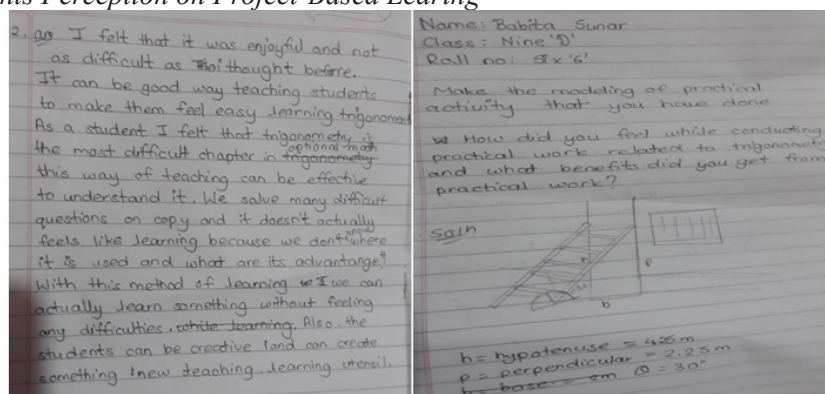 nts Perception on Project-Based Learing
2. ans I felt that it was enjoyful and not
as difficult as I thought before.
It can be good way teaching students
to make them feel easy learning trigonomet
As a student I felt that trigonometry is
the most difficult chapter in optional math
this way of teaching can be effective
to understand it. We solve many difficult
questions on copy and it doesn't actually
feels like learning because we don't know where
it is used and what are its advantange?
With this method of learning we can
actually learn something without feeling
any difficulties. Also, the
students can be creative and can create
something new teaching learning utensil.
Name: Babita Sunar
Class: Nine 'D'
Roll no: '6'
Make the modeling of practical
activity that you have done
How did you feel while conducting
practical work related to trigonometr
and what benefits did you get from
practical work?
Soln
h
p
b
h = hypotenuse = 4.25 m
p = perpendicular = 2.25 m
b = base = em θ = 30°